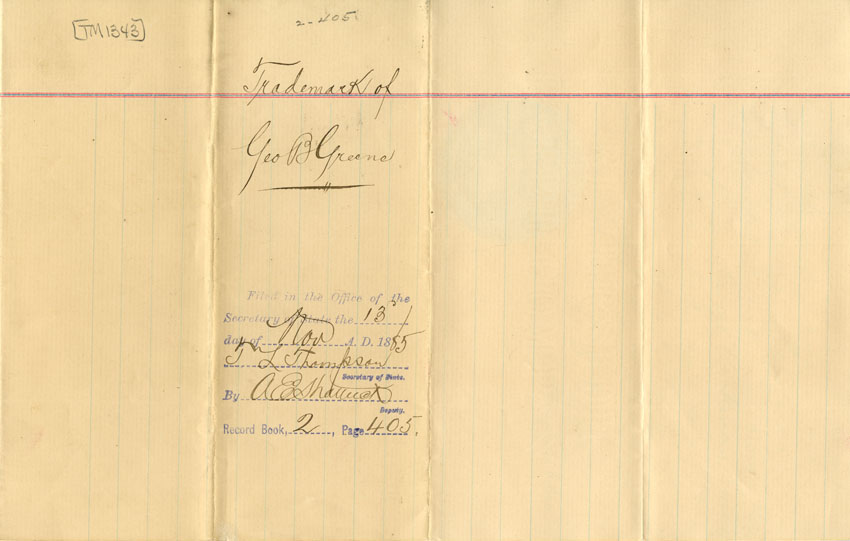 [TM1343]
2-405
Trademark of
Geo B Greene
Filed in the Office of the
Secretary of State the 13
day of Nov A. D. 1885
T L Thompson
Secretary of State.
By A E Shattuck
Deputy.
Record Book, 2, Page 405.